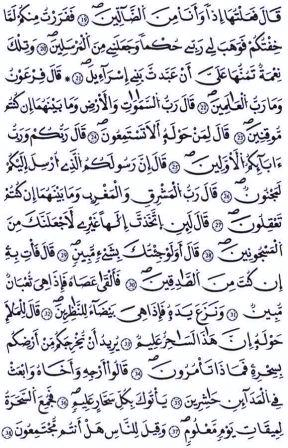 قَالَ فَعَلْتُهَا إِذًا وَأَنَا مِنَ الضَّالِّينَ ٢٠ فَفَرَرْتُ مِنكُمْ لَمَّا
خِفْتُكُمْ فَوَهَبَ لِي رَبِّي حُكْمًا وَجَعَلَنِي مِنَ الْمُرْسَلِينَ ٢١ وَتِلْكَ
نِعْمَةٌ تَمُنُّهَا عَلَيَّ أَنْ عَبَّدتَّ بَنِي إِسْرَاءِيلَ ٢٢ قَالَ فِرْعَوْنُ
وَمَا رَبُّ الْعَالَمِينَ ٢٣ قَالَ رَبُّ السَّمَوَاتِ وَالْأَرْضِ وَمَا بَيْنَهُمَا إِن كُنتُم
مُّوقِنِينَ ٢٤ قَالَ لِمَنْ حَوْلَهُ أَلَا تَسْتَمِعُونَ ٢٥ قَالَ رَبُّكُمْ وَرَبُّ
ءَابَائِكُمُ الْأَوَّلِينَ ٢٦ قَالَ إِنَّ رَسُولَكُمُ الَّذِي أُرْسِلَ إِلَيْكُمْ
لَمَجْنُونٌ ٢٧ قَالَ رَبُّ الْمَشْرِقِ وَالْمَغْرِبِ وَمَا بَيْنَهُمَا إِن كُنتُمْ
تَعْقِلُونَ ٢٨ قَالَ لَئِنِ اتَّخَذْتَ إِلَٰهًا غَيْرِي لَأَجْعَلَنَّكَ مِنَ
الْمَسْجُونِينَ ٢٩ قَالَ أَوَلَوْ جِئْتُكَ بِشَيْءٍ مُّبِينٍ ٣٠ قَالَ فَأْتِ بِهِ
إِن كُنتَ مِنَ الصَّادِقِينَ ٣١ فَأَلْقَى عَصَاهُ فَإِذَا هِيَ ثُعْبَانٌ
مُّبِينٌ ٣٢ وَنَزَعَ يَدَهُ فَإِذَا هِيَ بَيْضَاءُ لِلنَّاظِرِينَ ٣٣ قَالَ لِلْمَلَإِ
حَوْلَهُ إِنَّ هَٰذَا لَسَاحِرٌ عَلِيمٌ ٣٤ يُرِيدُ أَن يُخْرِجَكُم مِّنْ أَرْضِكُم
بِسِحْرِهِ فَمَاذَا تَأْمُرُونَ ٣٥ قَالُوا أَرْجِهْ وَأَخَاهُ وَابْعَثْ
فِي الْمَدَائِنِ حَاشِرِينَ ٣٦ يَأْتُوكَ بِكُلِّ سَحَّارٍ عَلِيمٍ ٣٧ فَجُمِعَ السَّحَرَةُ
لِمِيقَاتِ يَوْمٍ مَّعْلُومٍ ٣٨ وَقِيلَ لِلنَّاسِ هَلْ أَنتُم مُّجْتَمِعُونَ ٣٩